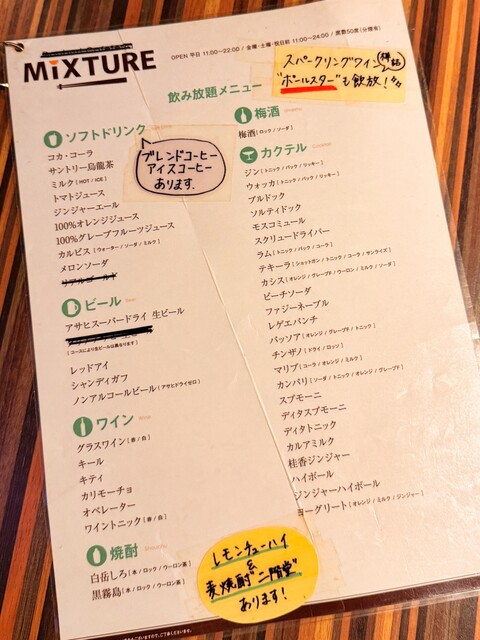 MiXTURE
OPEN 平日 11:00～22:00 / 金曜・土曜・祝日前 11:00～24:00 / 席数50席(分煙有)
スパークリングワイン
"ポールスター"も飲放!
飲み放題メニュー
ソフトドリンク
コカ・コーラ
サントリー烏龍茶
ミルク [HOT / ICE]
トマトジュース
ジンジャーエール
100%オレンジジュース
100%グレープフルーツジュース
カルピス [ウォーター / ソーダ / ミルク]
メロンソーダ
リアルゴールド
ブレンドコーヒー
アイスコーヒー
あります。
ビール
アサヒスーパードライ 生ビール
[コースにより生ビールは異なります]
レッドアイ
シャンディガフ
ノンアルコールビール [アサヒドライゼロ]
ワイン
グラスワイン [赤 / 白]
キール
キティ
カリモーチョ
オペレーター
ワイントニック [赤 / 白]
焼酎
白岳しろ [水 / ロック / ウーロン茶]
黒霧島 [水 / ロック / ウーロン茶]
梅酒
梅酒 [ロック / ソーダ]
カクテル
ジン [トニック / バック / リッキー]
ウォッカ [トニック / バック / リッキー]
ブルドック
ソルティドック
モスコミュール
スクリュードライバー
ラム [トニック / バック / コーラ]
テキーラ [ショットガン / トニック / コーラ / サンライズ]
カシス [オレンジ / グレープF / ウーロン / ミルク / ソーダ]
ピーチソーダ
ファジーネーブル
レゲエパンチ
パッソア [オレンジ / グレープF / トニック]
チンザノ [ドライ / ロッソ]
マリブ [コーラ / オレンジ / ミルク]
カンパリ [ソーダ / トニック / オレンジ / グレープF]
スプモーニ
ディタスプモーニ
ディタトニック
カルアミルク
桂香ジンジャー
ハイボール
ジンジャーハイボール
ヨーグリート [オレンジ / ミルク / ジンジャー]
レモンチューハイ
&
麦焼酎"二階堂"
あります!